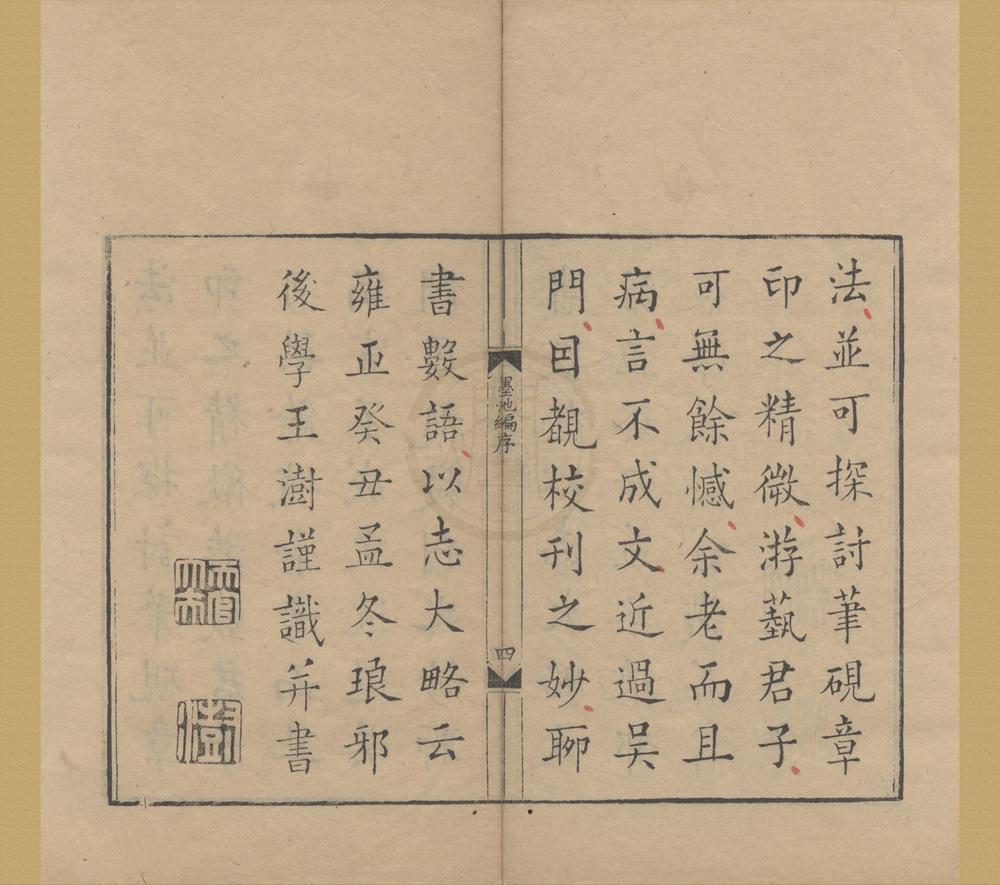 法並可探討筆硯章
印之精微游蓺君子
可無餘憾余老而且
病言不成文近過吴
門因覩校刊之妙聊
墨池編序
四
書數語以志大略云
雍正癸丑孟冬琅邪
後學王澍謹識并書
天官大夫
澍